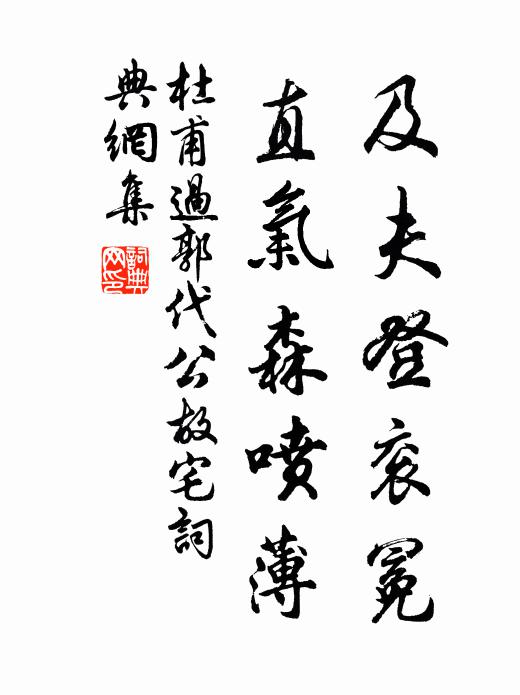 及夫登衮冕
直氣森噴薄
杜甫過郭代公故宅詞
典網集
詞典
网印